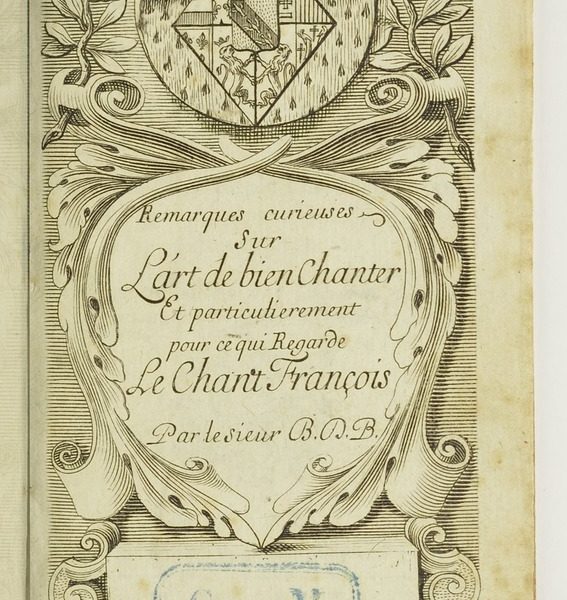 Remarques curieuses
Sur
L'art de bien Chanter
Et particulierement
pour ce qui Regarde
Le Chant François
Par le sieur B.D.B.